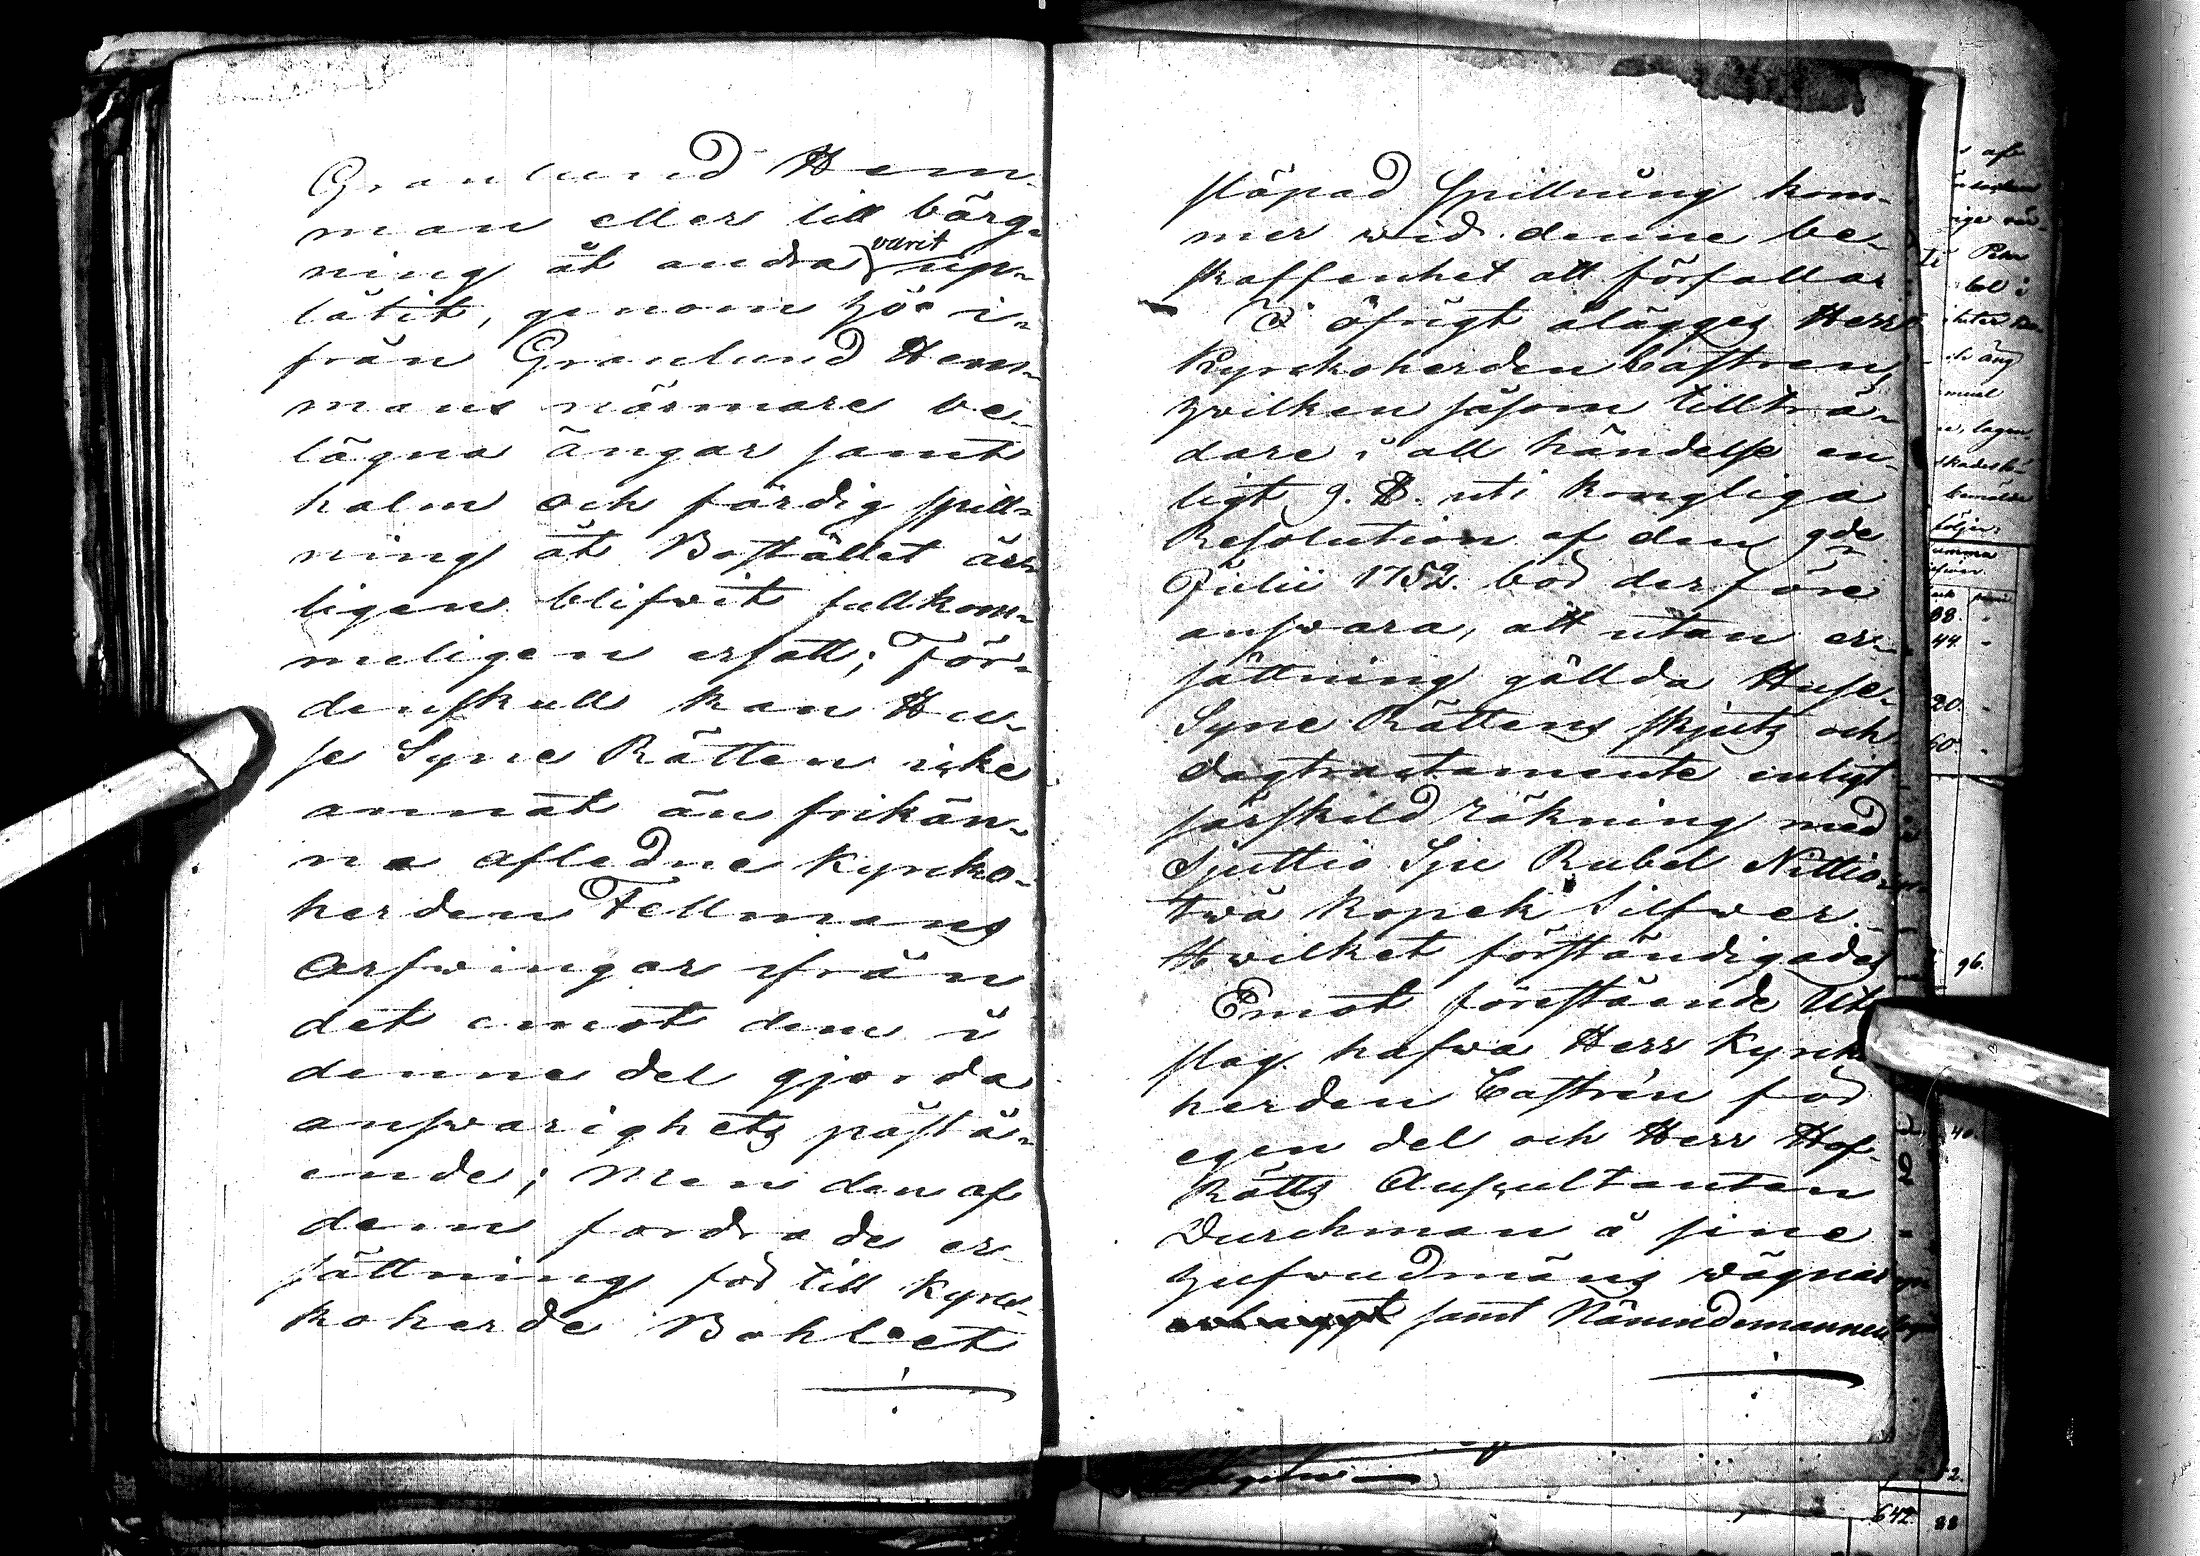 Granlund Hem-
man eller till bärg-
ning åt andra varit up-
låtit, genom hö i-
från Granlund Hem-
mans närmare be-
lägna ängar samt
halm och färdig spill-
ning åt Bostället års
ligen blifwit fullkom-
meligen ersatt; För-
denskull kan Hu-
se Syne Rätten icke
annat än frikän-
na afledne Kyrcko-
herden Fellmans
Arfwingar ifrån
det emot dem i
denna del gjorda
answarighets påstå-
ende; Men den af
dem fordrade er-
sättning för till Kyrc-
koherde Bohlet
släpad Spillning kom-
mer wid denne be-
skaffenhet att förfalla
I öfrigt ålägges Herr
Kyrckoherden Castren,
hvilken såsom tillträ-
dare i all händelse en-
ligt 9. §. uti Kongliga
Resolution af den 9de
Julii 1752. bör derföre
answara, att utan er-
sättning gällda Huse-
Syne Rättens skjuts och
dagtractamente enligt
särskild räkning med
Sjuttio Sju Rubel Nittio-
twå Kopek Silfwer.
Hwilket förständigades
Emot förestående Ut-
slag hafwa Herr Kyrck
herden Castrén för
egen del och Herr Hof-
Rätts Auscultanten
Durchman å sine
hufwudmäns wägnar
samt Nämndemannen